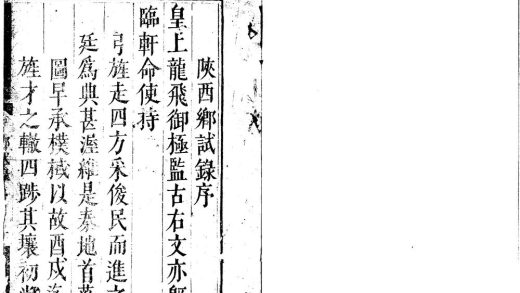 陝西鄉試錄序
皇上龍飛御極監古右文亦既
臨軒命使持
弓旌走四方采俊民而進之
廷為典甚渥維是秦地首蒙
圖早承樸棫以故酉戌
旌才之轍四踄其壤初